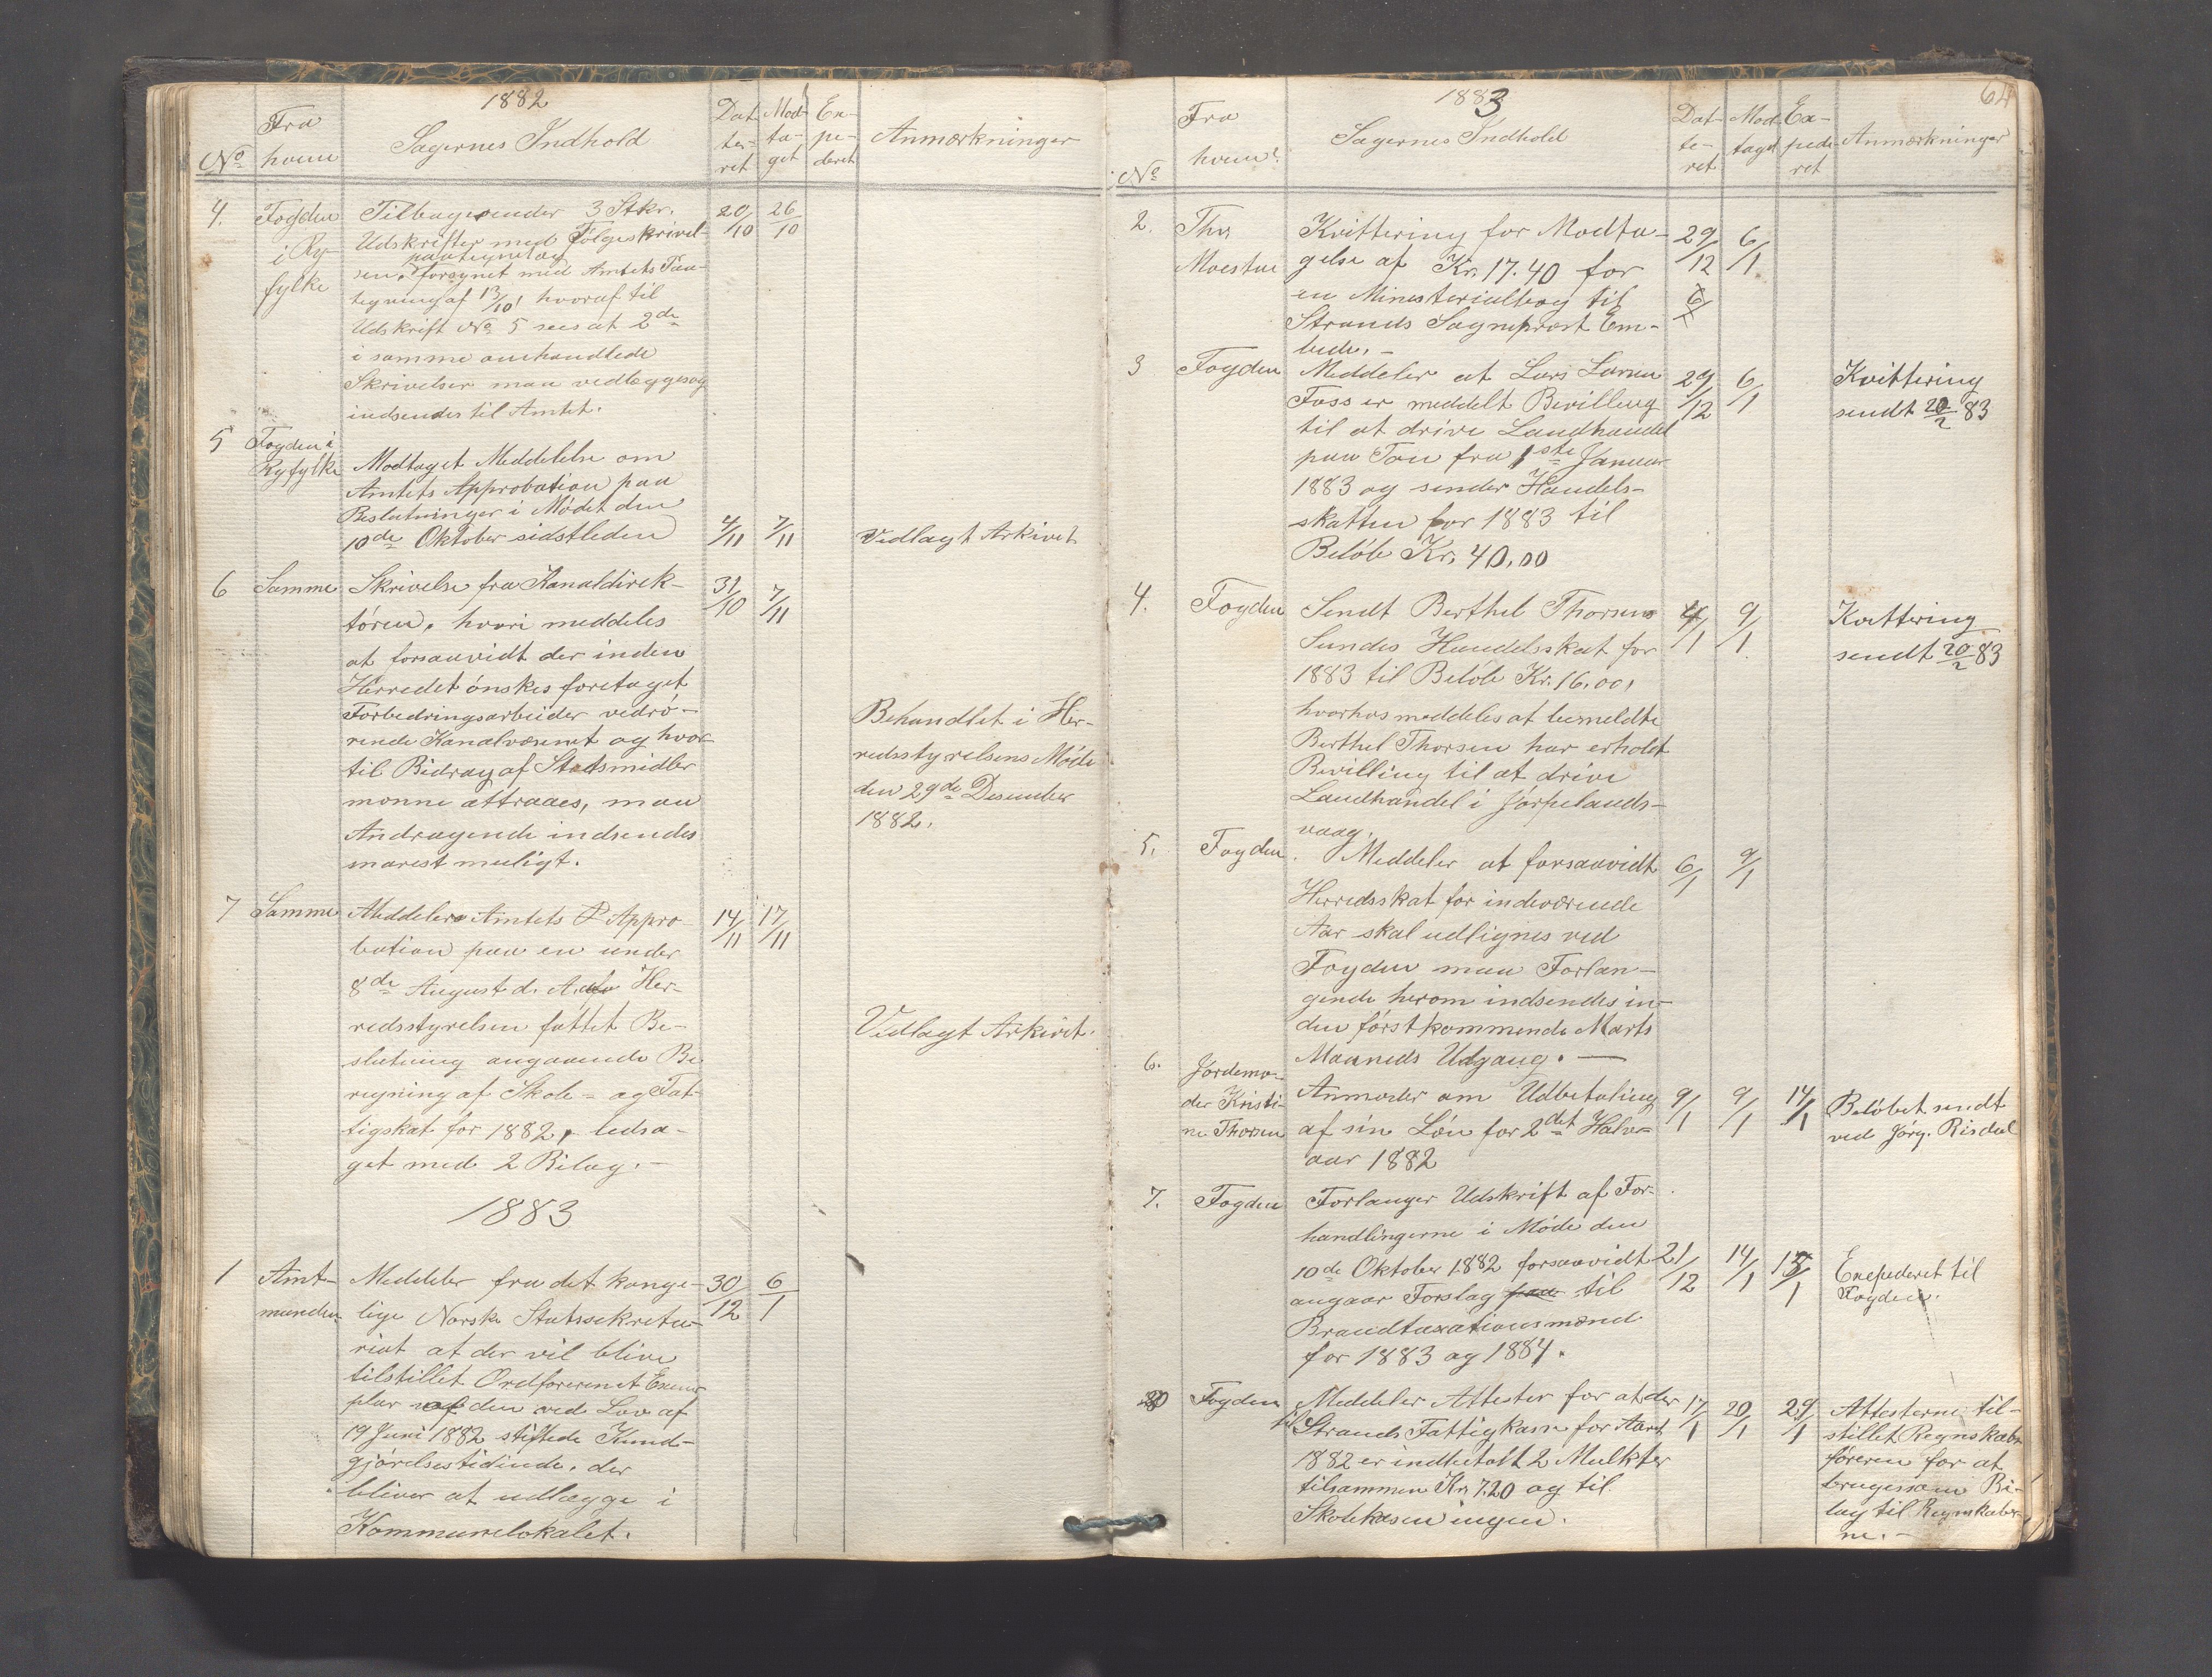 1882
No
Fra hvem
Sagernes Indhold
Datteret
Modtaget
Expederet
Anmærkninger
4.
Fogden
i Ry-
fylke
Tilbagesender 3 Stkr.
Udskrifter med Følgeskrivel-
paategnet og
sen, forsynet med Amtets Paa-
tegning af 13/10, hvoraf til
Udskrift No 5 sees at 2de
i samme omhandlede
Skrivelser maa vedlægges og
indsendes til Amtet.
20/10
26/10
5
Fogden i
Ryfylke
Modtaget Meddelelse om
Amtets Approbation paa
Beslutninger i Mødet den
10de Oktober sidstleden
4/11
7/11
Vedlagt Arkivet
6
Samme
Skrivelse fra Kanaldirek-
tøren, hvori meddeles
at forsaavidt der inden
Herredet ønskes foretaget
Forbedringsarbeider vedrø-
rende Kanalvæsenet og hvor-
til Bidrag af Statsmidler
monne attraaes, maa
Andragende indsendes
snarest muligt.
31/10
7/11
Behandlet i Her-
redsstyrelsens Møde
den 29de Desember
1882.
7
Samme
Meddeler Amtets Appro-
bation paa en under
8de August d. A. af Her-
redsstyrelsen fattet Be-
slutning angaaende Be-
regning af Skole- og Fat-
tigskat for 1882, ledsa-
get med 2 Bilag.-
14/11
17/11
Vedlagt Arkivet.
1883
1
Amt-
manden
Meddeler fra det konge-
lige Norske Statssekreta-
riat at der vil blive
tilstillet Ordføreren et Exem-
plar af den ved Lov af
19 Juni 1882 stiftede Kund-
gjørelsestidende, der
bliver at udlægge i
Kommunelokalet.
30/12
6/1
64
1883
No
Fra
hvem?
Sagernes Indhold
Datteret
Modtaget
Expederet
Anmærkninger
2.
Thv
Moestue
Kvittering for Modta-
gelse af Kr. 17.40 for
en Ministerialbog til
Strands Sognepræst Em-
bede.-
29/12
6/1
3
Fogden
Meddeler at Lars Larsen
Foss er meddelt Bevilling
til at drive Landhandel
paa Tou fra 1ste Januar
1883 og sender Handels-
skatten for 1883 til
Beløb Kr. 40.00
29/12
6/1
Kvittering
sendt 20/2 83
4.
Fogden
Sendt Berthel Thorsens
Sundes Handelsskat for
1883 til Beløb Kr. 16.00,
hvorhos meddeles at bemeldte
Berthel Thorsen har erholdt
Bevilling til at drive
Landhandel i Jørpelands-
vaag.
4/1
9/1
Kvittering
sendt 20/2 83
5.
Fogden.
Meddeler at forsaavidt
Herredsskat for indeværende
Aar skal udlignes ved
Fogden maa Forlan-
gende herom indsendes in-
den førstkommende Marts
Maaneds Udgang.-
6/1
9/1
6.
Jordemo-
der Kristi-
ne Thorsen
Anmoder om Udbetaling
af sin Løn for 2det Halv-
aar 1882
9/1
9/1
14/1
Beløbet sendt
ved Jørg. Risdal
7.
Fogden
Forlanger Udskrift af For-
handlingerne i Møde den
10de Oktober 1882 forsaavidt
angaar Forslag paa til
Brandtaxationsmænd
for 1883 og 1884.
21/12
14/1
Exepederet til
Fogden.
8
Fogden
Meddeler Attester for at der
til Strands Fattigkasse for Aaret
1882 er indbetalt 2 Mulkter
tilsammen Kr. 7.20 og til
Skolekassen ingen.
17/1
20/1
29/1
Attesterne til-
stillet Regnskabs-
føreren for at
bruges som Bi-
lag til Regnskaber-
ne.-